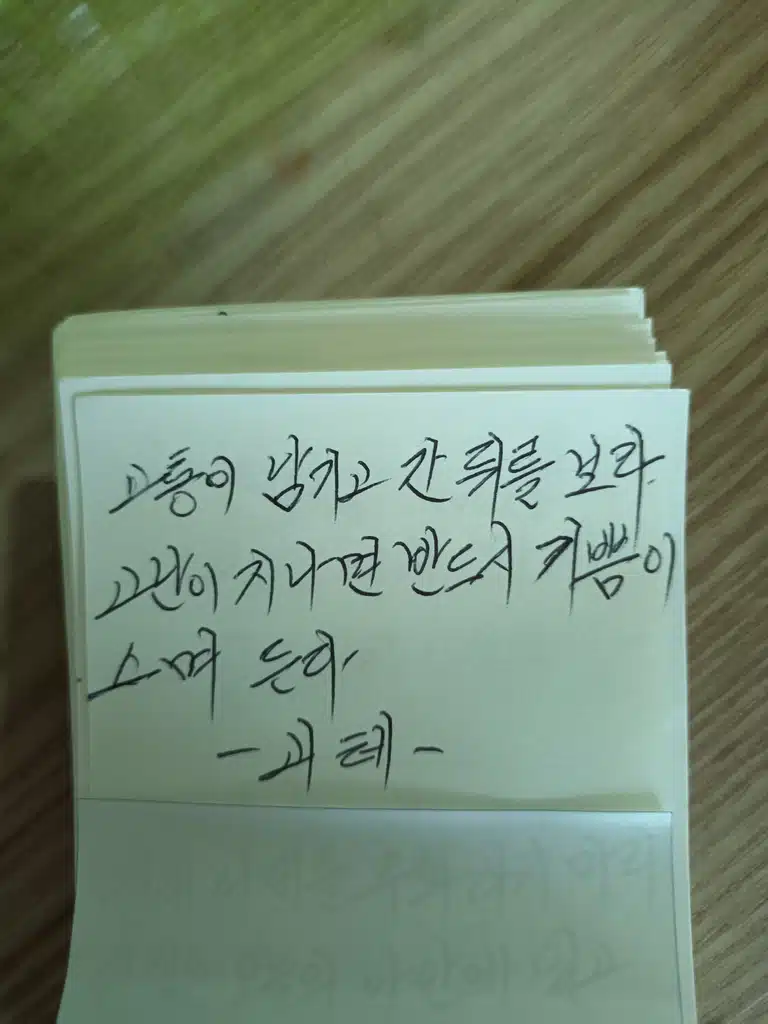 고통이 남기고 간 뒤를 보라.
고난이 지나면 반드시 기쁨이
스며 든다.
- 괴테 -